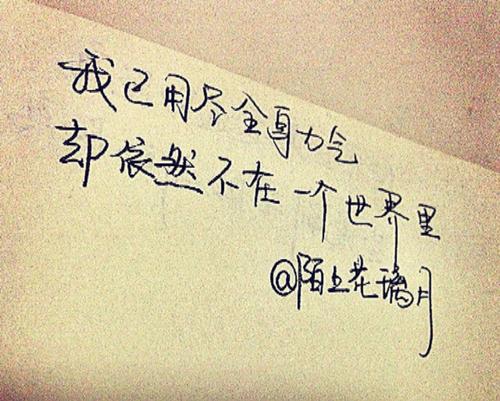 我已用尽全身力气
却依然不在一个世界里
@陌上花璃月